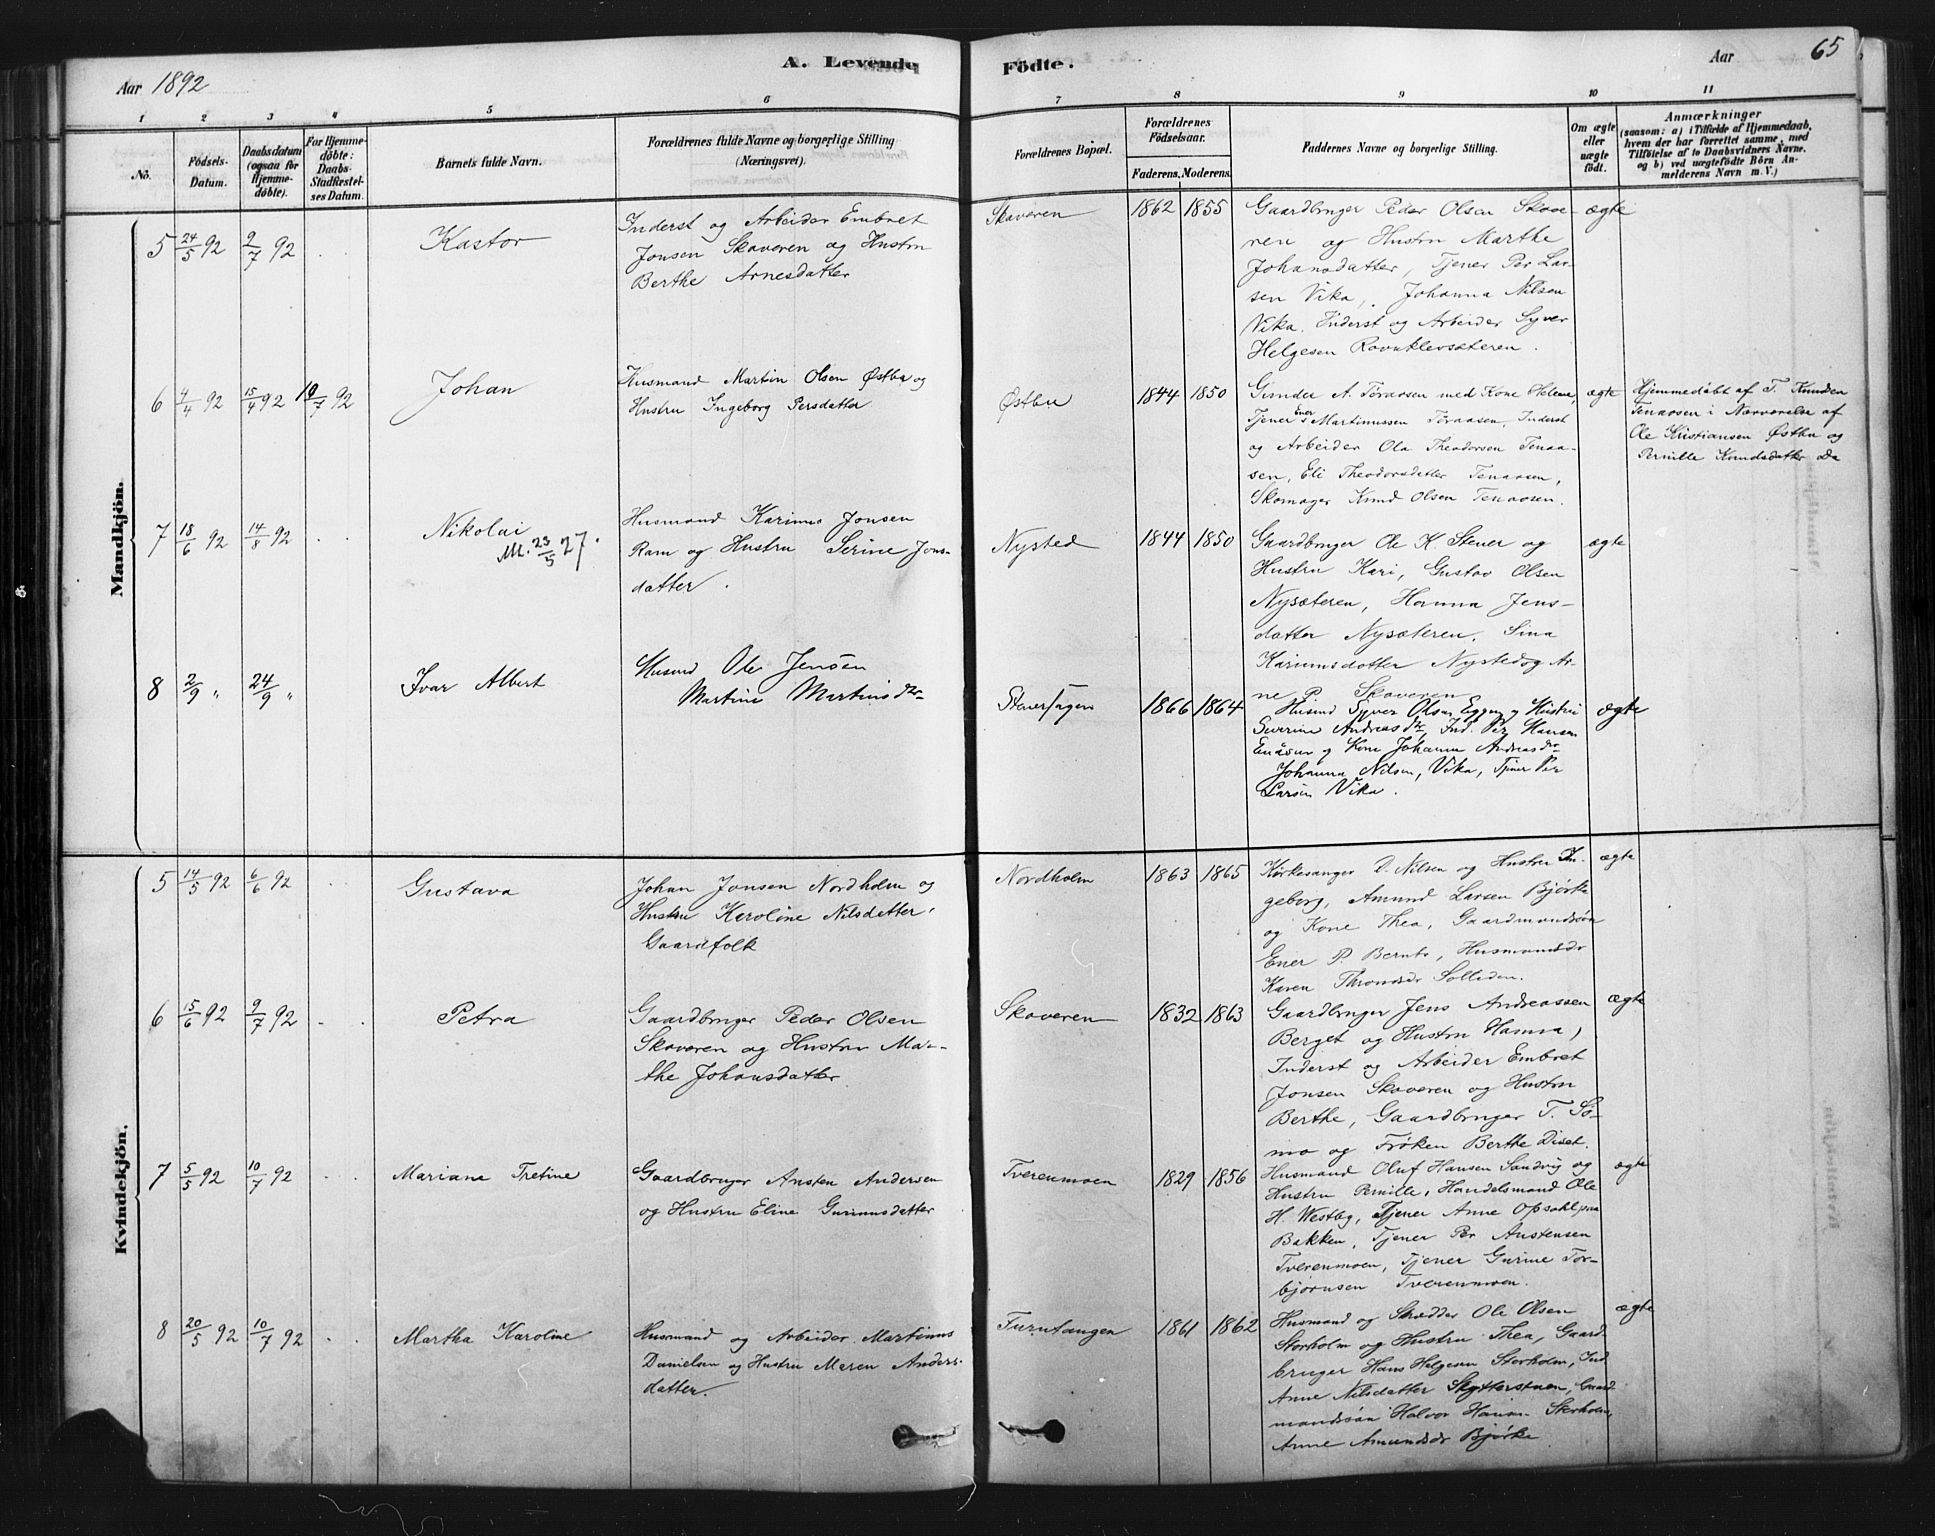 Aar 1892
A. Levende Födte.
Aar
65
1 2 3 4 5 6 7 8 9 10 11
No.
Födsels-Datum.
Daabsdatum (ogsaa for Hjemmedöbte).
For Hjemmedöbte: Daabs-Stadfæstelses Datum.
Barnets fulde Navn.
Forældrenes fulde Navne og borgerlige Stilling (Næringsvei).
Forældrenes Bopæl.
Forældrenes Födselsaar.
Faderens. Moderens.
Faddernes Navne og borgerlige Stilling.
Om ægte eller uægte födt.
Anmærkninger
(saasom: a) i Tilfælde af Hjemmedaab, hvem der har forrettet samme, med Tilföielse af to Daabsvidners Navne. og b) ved uægtefödte Börn Anmelderens Navn m. V.)
Mandkjön.
5 24/5 92 9/7 92 . .
Kastor
Inderst og Arbeider Embret
Jonsen Skaveren og Hustru
Berthe Arnesdatter
Skaveren
1862 1855
Gaardbruger Peder Olsen Skave-
ren og Hustru Marthe
Johansdatter, Tjener Per Lar-
sen Vika, Johanna Nilsen
Vika. Inderst og Arbeider Syver
Helgesen
ægte
6 4/4 92 15/4 92 10/7 92
Johan
Husmand Martin Olsen Østbu og
Hustru Ingeborg Persdatter
Østbu
1844 1850
A. Toraasen med Kone Helene,
Tjener Ener Martinussen Toraasen, Inderst
og Arbeider Ola Theodorsen Tenaa-
sen, Eli Theodorsdatter Tenaasen,
Skomager Knud Olsen Tenaasen.
ægte
Hjemmedøbt af T. Knudsen
Tenaasen i Nærværelse af
Ole Kristiansen Østbu og
Pernille Knudsdatter Do
7 18/6 92 14/8 92 . .
Nikolai
M. 23/5 27.
Husmand Karinus Jonsen
Ram og Hustru Serine Jons-
datter.
Nysted
1844 1850
Gaardbruger Ole K. Stener og
Hustru Kari, Gustav Olsen
Nysæteren, Hanna Jens-
datter Nysæteren. Sina
Karinusdatter Nysted og Ar-
ne P. Skaveren
ægte
8 2/9 " 24/9 "
Ivar Albert
Husmd Ole Jensen
Martine Martinsdtr
1866 1864
Husmd Syver Olsen Eggen og Hustru
Severine Andreasdtr, Ind. Per Hansen
og Kone Johanne Andreasdr
Johanna Nilsen, Vika, Tjener Per
Larsen Vika.
ægte
Kvindekjön.
5 14/5 92 6/6 92 . .
Gustava
Johan Jonsen Nordholm og
Hustru Karoline Nilsdatter,
Gaardfolk
Nordholm
1863 1865
Kirkesanger D. Nilsen og Hustru In-
geborg, Amund Larsen Bjørke
og Kone Thea, Gaardmandssøn
Ener P. Bernts, Husmandsdr
Karen Throndsdr Solliden.
ægte
6 15/6 92 9/7 92 . .
Petra
Gaardbruger Peder Olsen
Skaveren og Hustru Mar-
the Johansdatter
Skaveren
1832 1863
Gaardbruger Jens Andreassen
Berget og Hustru Hanna,
Inderst og Arbeider Embret
Jonsen Skaveren og Hustru
Berthe, Gaardbruger T. Sö-
mo og Frøken Berthe Diset.
ægte
7 5/5 92 10/7 92 . .
Mariane Tretine
Gaardbruger Ansten Andersen
og Hustru Eline Gunnusdatter
Tverenmoen
1829 1856
Husmand Oluf Hansen Sandvig og
Hustru Pernille, Handelsmand Ole
H. Westby, Tjener Anne Opsahl paa
Bakken, Tjener Per Anstensen
Tverenmoen, Tjener Gurine Tor-
bjørnsen Tverenmoen.
ægte
8 20/5 92 10/7 92 . .
Martha Karoline
Husmand og Arbeider Martinus
Danielsen og Hustru Maren Anders-
datter.
Furutangen
1861 1862
Husmand og Skrædder Ole Olsen
Storholm og Hustru Thea, Gaard-
bruger Hans Helgesen Storholm, Ind
Anne Nilsdatter Skytterstuen, Gaard-
mandssøn Halvor Hansen Storholm,
Anne Amundsdr Bjørke
ægte